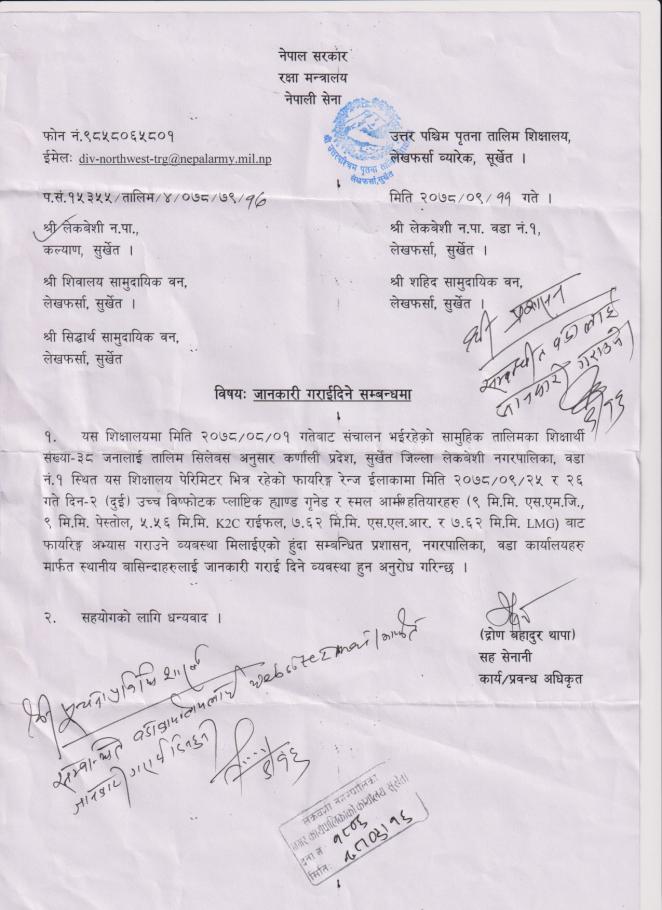 नेपाल सरकार
रक्षा मन्त्रालय
नेपाली सेना
फोन नं.९८५८०६५८०१
ईमेलः div-northwest-trg@nepalarmy.mil.np
उत्तर पश्चिम पृतना तालिम शिक्षालय,
लेखफर्सा ब्यारेक, सूर्खेत ।
प.सं.१५३५५/तालिम/४/०७८/७९/१६
मिति २०७८/०९/११ गते ।
श्री लेकबेशी न.पा.,
कल्याण, सुर्खेत ।
श्री लेकबेशी न.पा. वडा नं.१,
लेखफर्सा, सुर्खेत ।
श्री शिवालय सामुदायिक वन,
लेखफर्सा, सुर्खेत ।
श्री शहिद सामुदायिक वन,
लेखफर्सा, सुर्खेत ।
श्री सिद्धार्थ सामुदायिक वन,
लेखफर्सा, सुर्खेत
श्री प्रशासन
सम्बन्धीत वडा लाई
जानकारी गराउने
विषयः जानकारी गराईदिने सम्बन्धमा
१. यस शिक्षालयमा मिति २०७८/०८/०१ गतेबाट संचालन भईरहेको सामुहिक तालिमका शिक्षार्थी
संख्या-३८ जनालाई तालिम सिलेवस अनुसार कर्णाली प्रदेश, सुर्खेत जिल्ला लेकबेशी नगरपालिका, वडा
नं.१ स्थित यस शिक्षालय पेरिमिटर भित्र रहेको फायरिङ्ग रेन्ज ईलाकामा मिति २०७८/०९/२५ र २६
गते दिन-२ (दुई) उच्च विष्फोटक प्लाष्टिक ह्याण्ड गृनेड र स्मल आर्म्स हतियारहरु (९ मि.मि. एस.एम.जि.,
९ मि.मि. पेस्तोल, ५.५६ मि.मि. K2C राईफल, ७.६२ मि.मि. एस.एल.आर. र ७.६२ मि.मि. LMG) बाट
फायरिङ्ग अभ्यास गराउने व्यवस्था मिलाईएको हुंदा सम्बन्धित प्रशासन, नगरपालिका, वडा कार्यालयहरु
मार्फत स्थानीय बासिन्दाहरुलाई जानकारी गराई दिने व्यवस्था हुन अनुरोध गरिन्छ ।
२. सहयोगको लागि धन्यवाद ।
(द्रोण बहादुर थापा)
सह सेनानी
कार्य/प्रवन्ध अधिकृत
श्री सूचना प्रविधि शाखा
लेकबेशी नगरपालिका
नगर कार्यपालिकाको कार्यालय सुर्खेत
दर्ता नं १८०६
मिति: